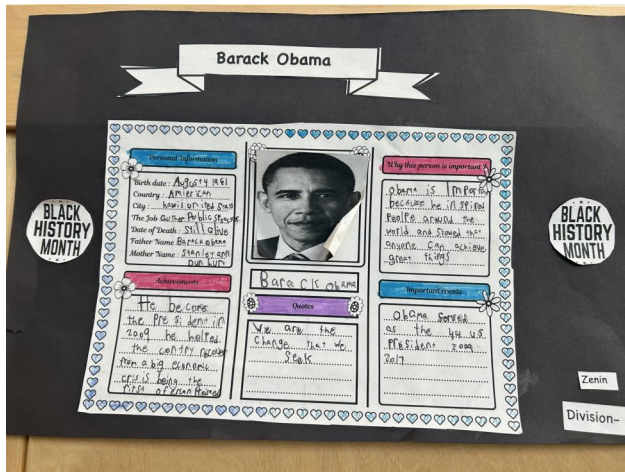 Barack Obama
Personal Information
Birth date : August 4 1961
Country : Amierican
City : hawii united stats
The Job Author Public Speaker
Date of Death : Still alive
Father Name : Barack obama
Mother Name : Stanley ann
Dun hum
Achievements
He become
the President in
2009 he helped
the contry recover
from a big economic
crisis being the
first
Barack obama
Quotes
We are the
Change that we
Seek
Why this person is important ?
obama is Import
because he inspired
around the
world and showed that
anyone can achieve
great things
Important events
obama served
as the 44 u.s
President 2009
2017
BLACK
HISTORY
MONTH
BLACK
HISTORY
MONTH
Zenin
Division-